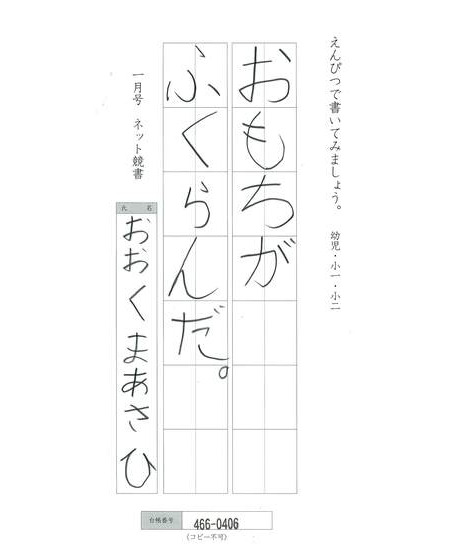 えんぴつで書いてみましょう。　幼児・小一・小二
おもちが
ふくらんだ。
一月号　ネット競書
氏名
おおくまあさひ
台帳番号 466-0406
(コピー不可)